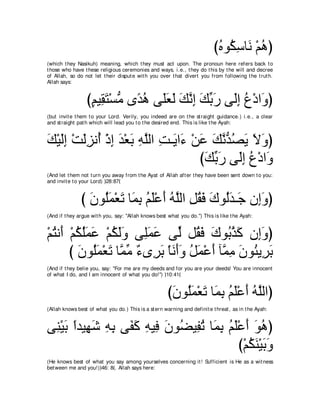 (هُمْ نَاسِكُوهُ)
(which they Nasikuh) meaning, which they must act upon. The pronoun here refers back to
those who have these religious ceremonies and ways, i.e., they do this by the will and decree
of Allah, so do not let their dispute with you over that divert you from following the truth.
Allah says:
(وَادْعُ إِلَى رَبِّكَ إِنَّكَ لَعَلَى هُدًى مُّسْتَقِيمٍ)
(but invite them to your Lord. Verily, you indeed are on the straight guidance.) i.e., a clear
and straight path which will lead you to the desired end. This is like the Ayah:
(وَلاَ يَصُدُّنَّكَ عَنْ ءَايَـتِ اللَّهِ بَعْدَ إِذْ أُنزِلَتْ إِلَيْكَ
وَادْعُ إِلَى رَبِّكَ)
(And let them not turn you away from the Ayat of Allah after they have been sent down to you:
and invite to your Lord) )28:87(
(وَإِن جَـدَلُوكَ فَقُلِ اللَّهُ أَعْلَمُ بِمَا تَعْمَلُونَ )
(And if they argue with you, say: "Allah knows best what you do.") This is like the Ayah:
(وَإِن كَذَّبُوكَ فَقُل لِّى عَمَلِى وَلَكُمْ عَمَلُكُمْ أَنتُمْ
بَرِيئُونَ مِمَّآ أَعْمَلُ وَأَنَاْ بَرِىءٌ مِّمَّا تَعْمَلُونَ )
(And if they belie you, say: "For me are my deeds and for you are your deeds! You are innocent
of what I do, and I am innocent of what you do!") )10:41(
(اللَّهُ أَعْلَمُ بِمَا تَعْمَلُونَ)
(Allah knows best of what you do.) This is a stern warning and definite threat, as in the Ayah:
(هُوَ أَعْلَمُ بِمَا تُفِيضُونَ فِيهِ كَفَى بِهِ شَهِيداً بَيْنِى
وَبَيْنَكُمْ)
(He knows best of what you say among yourselves concerning it! Sufficient is He as a witness
between me and you!))46: 8(. Allah says here: